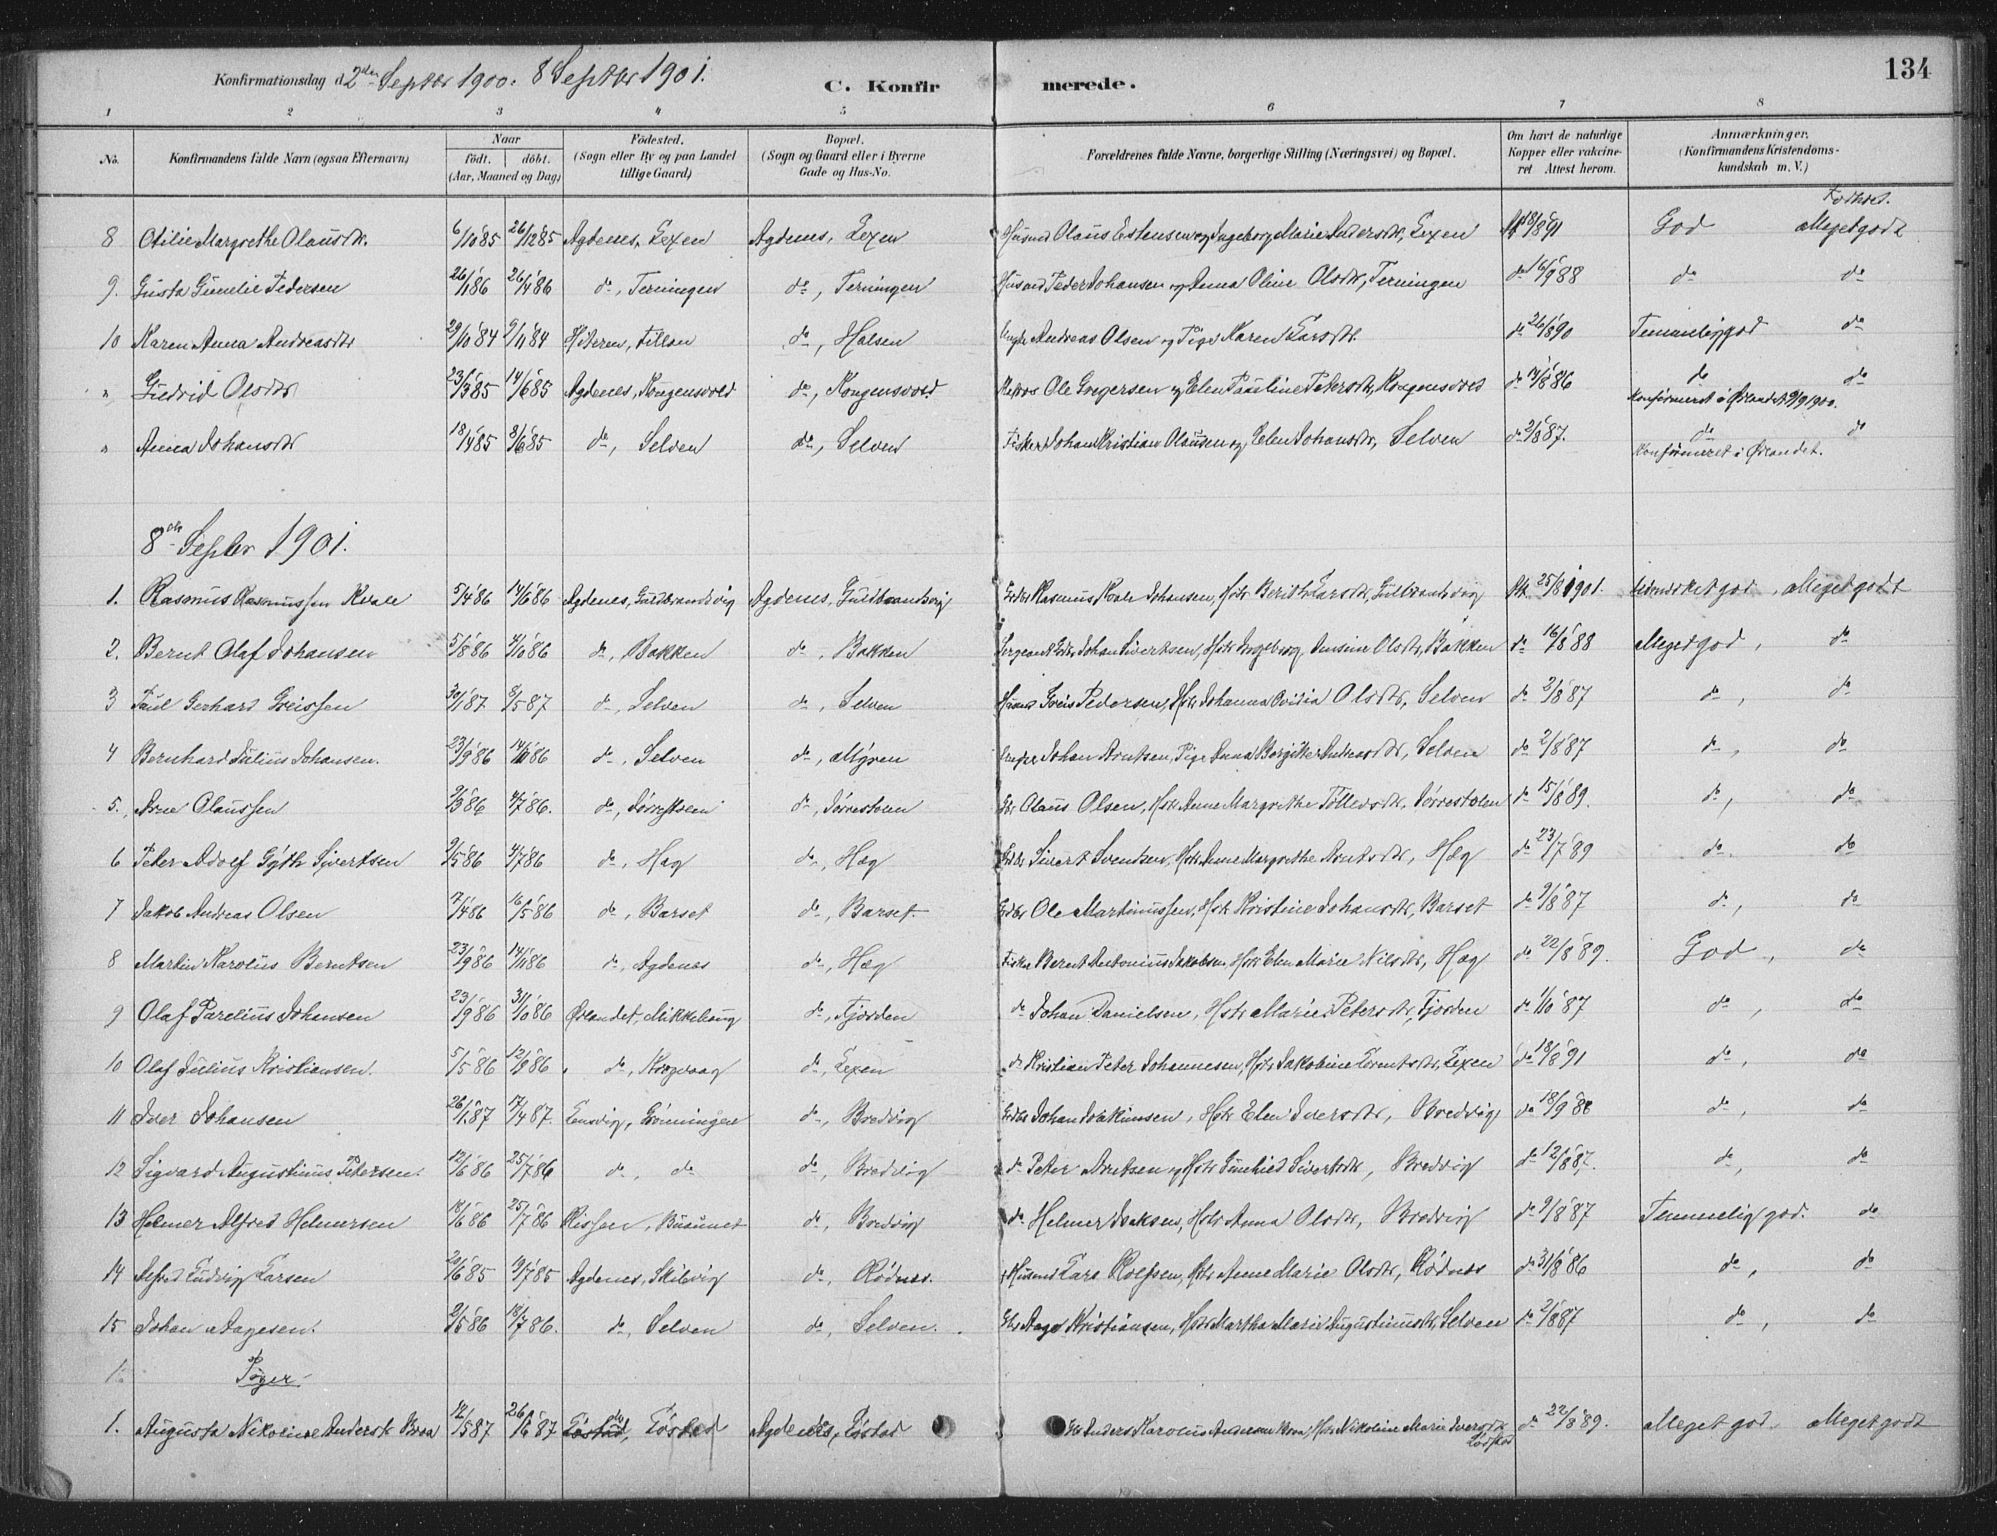 134
Konfirmationsdag d. 2den Septbr 1900. 8 Septbr 1901.
C. Konfirmerede.
1 2 3 4 5 6 7 8
No.
Konfirmandens fulde Navn (ogsaa Efternavn)
Naar
født. døbt.
(Aar, Maaned og Dag)
Fødested.
(Sogn eller By og paa Landet
tillige Gaard)
Bopæl.
(Sogn og Gaard eller i Byerne
Gade og Hus-No.
Forældrenes fulde Navne, borgerlige Stilling (Næringsvei) og Bopæl.
Om havt de naturlige
Kopper eller vakcine-
ret Attest herom.
Anmærkninger.
(Konfirmandens Kristendoms-
kundskab m. V.)
Forhold.
8 Otilie Margrethe Olausdtr. 6/10 85 26/12 85 Agdenes, Lexen Agdenes, Lexen Husmd Olaus Estensen og Ingeborg Marie Andersdtr, Lexen 18/8 91 God Meget godt
9. Gusta Gunelie Pedersen 26/1 86 26/4 86 do, Terningen do, Terningen Husmd Peder Johansen og Anna Oline Olsdtr, Terningen do 16/9 88 do do
10 Karen Anna Andreasdtr 29/10 84 9/11 84 Hiteren, Fillan do, Halsen Ungk Andreas Olsen og Pige Karen Larsdtr. do 26/8 90 Temmelig god do
" Gudrid Olsdtr 23/3 85 14/6 85 Agdenes, Kongensvold do, Kongensvold Ole Gregersen og Elen Pauline Petersdtr, Kongensvold do 14/8 86 do do
Konfirmeret i Ørlandet 9/9 1900.
" Anna Johansdtr 18/4 85 8/6 85 do, Selven do, Selven Fisker Johan Kristian Olausen og Elen Johansdtr, Selven do 2/8 87. do do
Konfirmeret i Ørlandet.
8de Septbr 1901.
1. Rasmus Rasmussen Kvale 5/4 86 14/6 86 Agdenes, Guldbrandsvig Agdenes, Guldbrandsvig Gbr Rasmus Kvale Johansen, Hstr Berith Larsdtr, Gulbrandsvig 25/8 1901. Udmærket god, Meget godt
2. Bernt Olaf Johansen 5/8 86 4/10 86 do, Bakken do, Bakken Sergeant Gbr Johan Sivertsen, Hstr Ingeborg Jensine Olsdtr, Bakken do 16/8 88 Meget god, do
3 Paul Gerhard Greissen 30/1 87 8/5 87 do, Selven do, Selven Husmd Greis Pedersen, Hstr Johanna Ovidia Olsdtr, Selven do 2/8 87 do, do
4 Bernhard Julius Johansen. 23/9 86 14/11 86 do, Selven do, Myren Ungk Johan Arntsen, Pige Anna Bergitte Andreasdtr, Selven do 2/8 87 do, do
5. Arne Olaussen 9/3 86 4/7 86. do, do, Gbr Olaus Olsen, Hstr Anne Margrethe Tollefsdtr, do 15/8 89. do, do
6 Peter Adolf Gyth Sivertsen 9/5 86 4/7 86 do, Hag do, Hag Gbr Sivert Sventsen, Hstr Anne Margrethe Arntsdtr, Hag do 23/7 89 do. do
7 Jakob Andreas Olsen 17/4 86 16/5 86 do, Barset do, Barset Gbr Ole Martinussen, Hstr Kristine Johansdtr, Barset do 9/8 87 do, do
8 Martin Karolus Berntsen 23/9 86 14/11 86 do, Agdenes do, Hag Fisker Bernt Antonius Jakobsen, Hstr Elen Marie Nilsdtr, Hag do 22/8 89. God, do
9 Olaf Parelius Johansen 23/9 86 31/10 86 Ørlandet, Mikkelhaug do, Fjorden do Johan Danielsen, Hstr Marie Petersdtr, Fjorden do 1/10 87 do, do
10 Olaf Julius Kristiansen. 5/5 86 12/9 86 do, Krogvaag do, Lexen do Kristian Peter Johannesen, Hstr Jakobine Lorentsdtr, Lexen do 18/8 91 do, do
11 Iver Johansen 26/1 87 17/4 87. Lensvig, Grønningen do, Bredvig Gbr Johan Joakimsen, Hstr Elen Iversdtr, Bredvig do 18/9 88 do, do
12 Sigvard Augustinus Petersen. 12/6 86 25/7 86 do, do do, Bredvig do Peter Arntsen og Hstr Gunhild Sivertsdtr, Bredvig do 12/8 87. do, do
13 Helmer Alfred Helmersen 18/6 86 25/7 86 Rissen, Busunet do, Bredvig do Helmer Isaksen, Hstr Anna Olsdtr, Bredvig do 9/8 87 Temmelig god. do
14 Alfred Ludvig Larsen 20/6 85 19/7 85 Agdenes, Skibvig do, Rødnes. Husmd Lars Rolfsen, Hstr Anne Marie Olsdtr, Rødnes do 31/8 86 do, do
15 Johan Aagesen. 9/5 86 18/7 86. do, Selven do, Selven. Gbr Aage Kristiansen, Hstr Martha Marie Augustinusdtr, Selven do 2/8 87 do, do
Piger
1. Augusta Nikoline Andersdtr Broa 12/5 87 26/6 87 do, Løstad Agdenes, Løstad Gbr Anders Karolus Andersen Broa, Hstr Nikoline Marie Iversdtr do 22/8 89. Meget god. Meget godt
Løstad